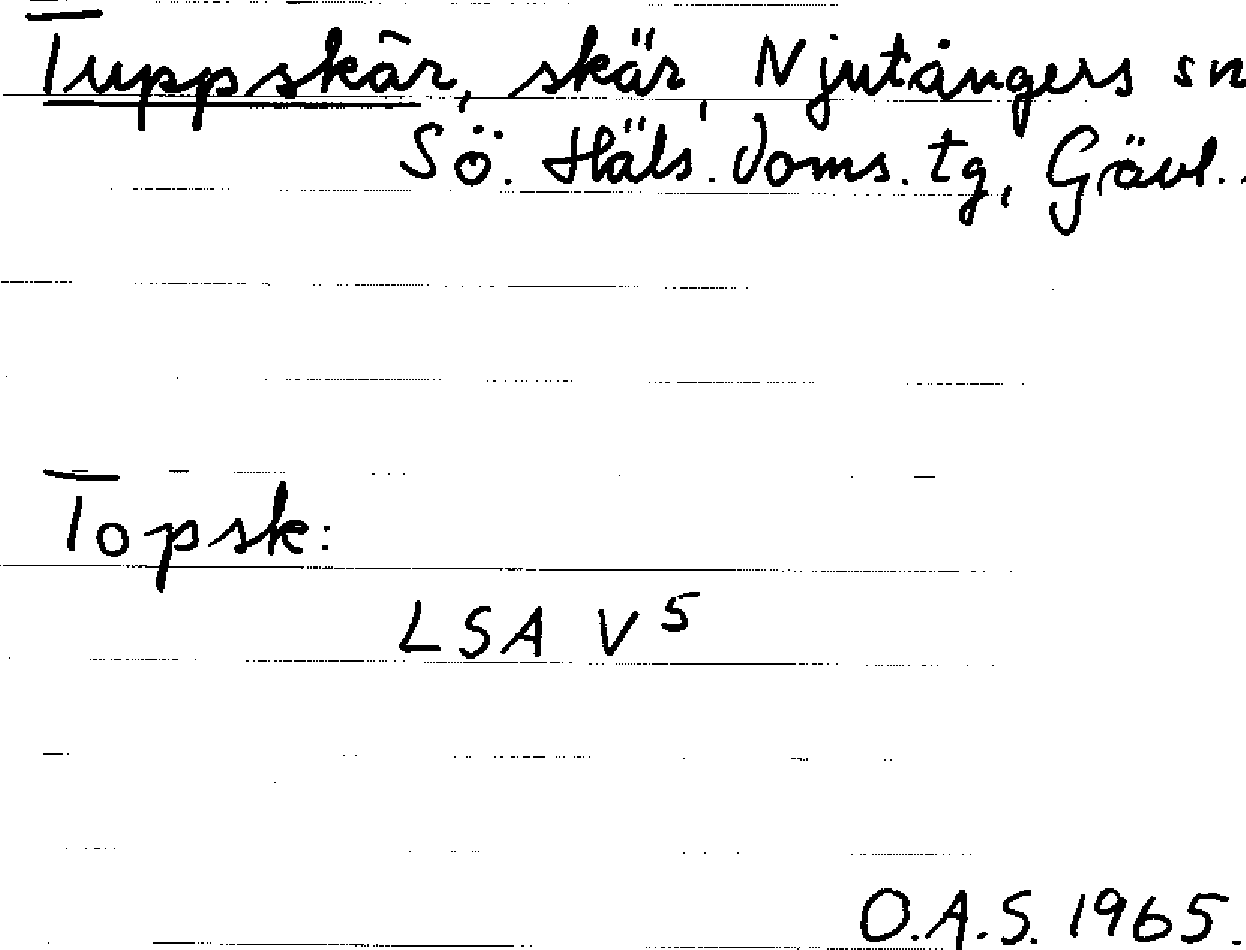 Tuppskär, skär, Njutångers sn
Sö. Häls. Doms. tg, Gävl..
Topsk:
LSA V 5
O.A.S. 1965.